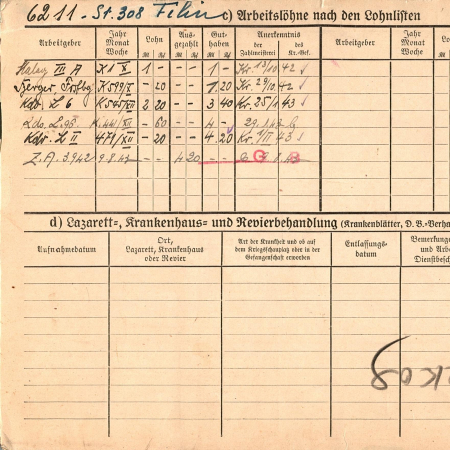 6211 - St. 308 Filin c) Arbeitslöhne nach den Lohnlisten
Arbeitgeber Jahr Monat Woche Lohn Ausgezahlt Guthaben Anerkenntnis der Zahlmeisterei des Kr.-Gef. Arbeitgeber Jahr Monat Woche Lohn
RM Rpf RM Rpf RM Rpf
III A X 1 X 1 - 1 - Kr. 13/10 42
Berger, K 599/X - 20 1 20 Kr. 29/10. 42
Kdo. L 6 K 545/XII 2 20 3 40 Kr. 25/1 43
Kdo. L. 98 K. 441/XII - 60 4 - 29. 1. 43
Kdo. L II 471/XII - 20 4 20 Kr. 1/II 43
Z. A. 3.942 9.8.43 - - 4 20 - - G 8. 43
d) Lazarett-, Krankenhaus- und Revierbehandlung (Krankenblätter, D. B.-Verha
Aufnahmedatum Ort, Lazarett, Krankenhaus oder Revier Art der Krankheit und ob auf dem Kriegsschauplatz oder in der Gefangenschaft erworben Entlassungsdatum Bemerkung und Arb Dienstbesch